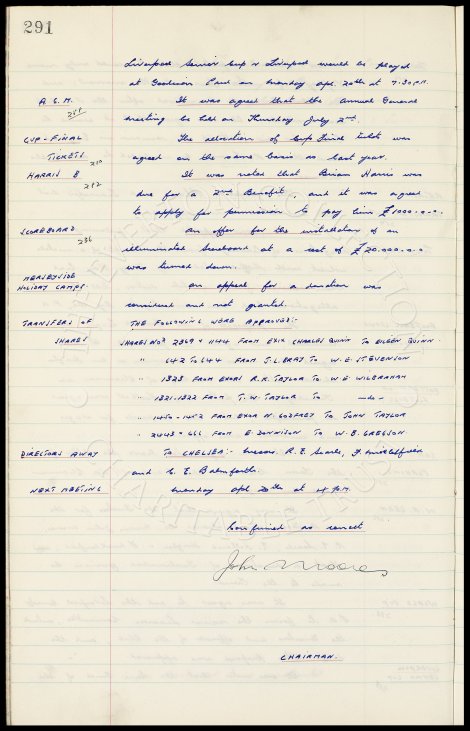 291
Liverpool Senior Cup v Liverpool would be played
at Goodison Park on Monday Apl. 20th at 7-30 P.M.
A.G.M. It was agreed that the Annual General
251
meeting be held on Thursday July 2nd.
CUP-FINAL The allocation of Cup Final tickets was
TICKETS agreed on the same basis as last year.
210
HARRIS B It was noted that Brian Harris was
212
due for a 2nd Benefit, and it was agreed
to apply for permission to pay him £1000.0.0.
SCOREBOARD An offer for the installation of an
236
illuminated scoreboard at a cost of £20.000.0.0
was turned down.
MERSEYSIDE
HOLIDAY CAMPS. An appeal for a donation was
considered and not granted.
TRANSFERS OF THE FOLLOWING WERE APPROVED:-
SHARES SHARES NOS 2869 & 1144 FROM EXIX CHARLES QUINN TO EILEEN QUINN.
" 642 TO 644 FROM J.L. BRAY TO W.E. STEVENSON
" 1323 FROM EXORS R.R. TAYLOR TO W.E. WILBRAHAM
" 1321-1322 FROM T.W. TAYLOR TO -do-
" 1450-1452 FROM EXOR N. GODFREY TO JOHN TAYLOR
" 2443 & 666 FROM E. DONNISON TO W.B. GREGSON
DIRECTORS AWAY TO CHELSEA:- Messrs. R.E. Searle, F. Micklesfield
and C.E. Balmforth.
NEXT MEETING Monday Apl 20th at 4 P.M.
Confirmed as correct
John Moores
CHAIRMAN.